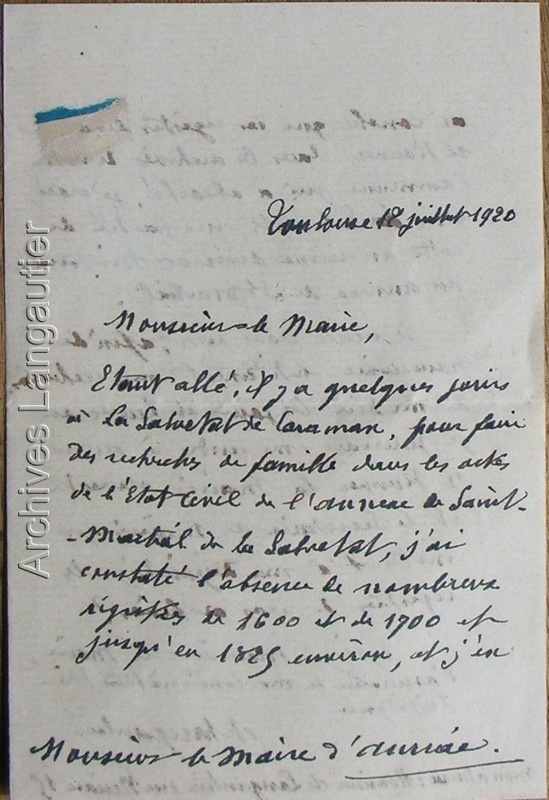 Archives Langautier
Toulouse 18 juillet 1920
Monsieur le Maire,
Etant allé, il y a quelques jours
à La Salvetat de Caraman, pour faire
des recherches de famille dans les actes
de l'Etat Civil de l'annexe de Saint-
-Martial de la Salvetat, j'ai
constaté l'absence de nombreux
régistres de 1600 et de 1700 et
jusqu'en 1825 environ, et j'en
Monsieur le Maire d'Auriac.